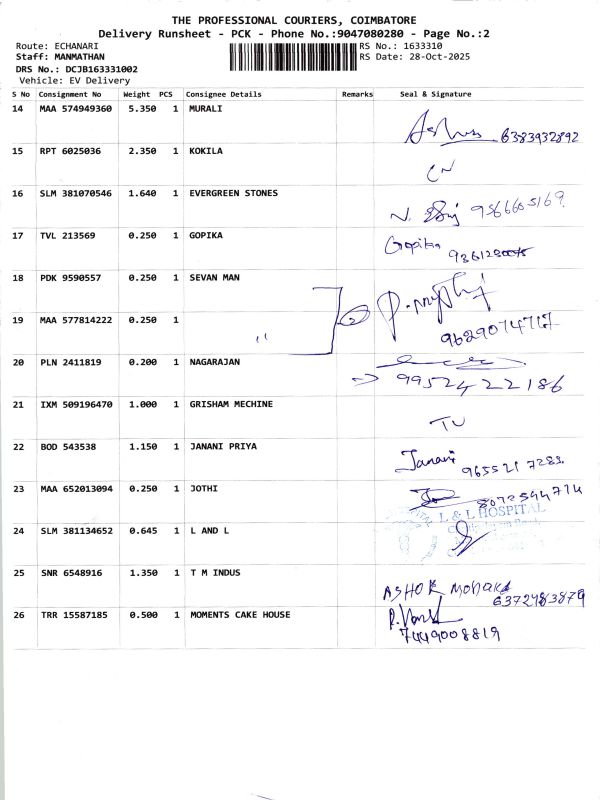 THE PROFESSIONAL COURIERS, COIMBATORE
Delivery Runsheet - PCK - Phone No.:9047080280 - Page No.:2
Route: ECHANARI RS No.: 1633310
Staff: MANMATHAN RS Date: 28-Oct-2025
DRS No.: DCJB163331002
Vehicle: EV Delivery
S No Consignment No Weight PCS Consignee Details Remarks Seal & Signature
14 MAA 574949360 5.350 1 MURALI
6383932892
15 RPT 6025036 2.350 1 KOKILA
16 SLM 381070546 1.640 1 EVERGREEN STONES
17 TVL 213569 0.250 1 GOPIKA Gopika
18 PDK 9590557 0.250 1 SEVAN MAN
19 MAA 577814222 0.250 1 "
20 PLN 2411819 0.200 1 NAGARAJAN
9952422186
21 IXM 509196470 1.000 1 GRISHAM MECHINE
22 BOD 543538 1.150 1 JANANI PRIYA Janani
9655217283
23 MAA 652013094 0.250 1 JOTHI
8072544714
24 SLM 381134652 0.645 1 L AND L L & L HOSPITAL
25 SNR 6548916 1.350 1 T M INDUS ASHOK
26 TRR 15587185 0.500 1 MOMENTS CAKE HOUSE
7449008819